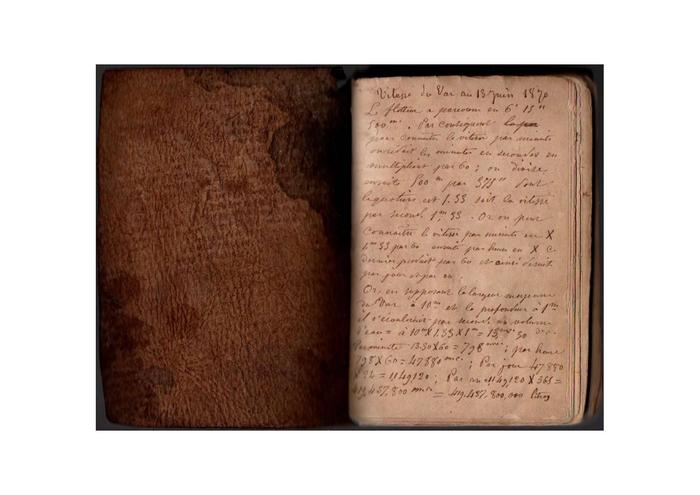 Vitesse du Var au 13 juin 1870
Le flotteur a parcouru en 6' 15"
500 m. . Par conséquent
pour connaître la vitesse par minute
on réduit les minutes en secondes en
multipliant par 60 ; on divise
ensuite 500 m par 375" dont
le quotient est 1.33 soit la vitesse
par seconde 1 m 33 . Or on peut
connaître la vitesse par minute en X
1 m 33 par 60 ensuite par heure en X ce
dernier produit par 60 et ainsi de suite
par jour et par an .
Or, en supposant la largeur moyenne
du Var à 10 m et la profondeur à 1 m
il s'écoulerait par seconde un volume
d'eau = à 10 m X 1.33 X 1 m = 13 30
Par minute 13.30 X 60 = 798 ; par heure
798 X 60 = 47880 mc. ; Par jour 47880
X 24 = 1149120 ; Par an 1149,120 X 365 =
419,437,800 = 419,437,800,000 litres